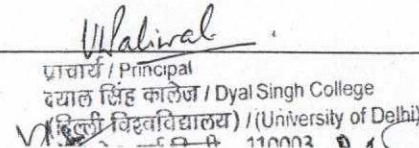 VKPaliwal
प्राचार्य / Principal
दयाल सिंह कॉलेज / Dyal Singh College
(दिल्ली विश्वविद्यालय) / (University of Delhi)
110003